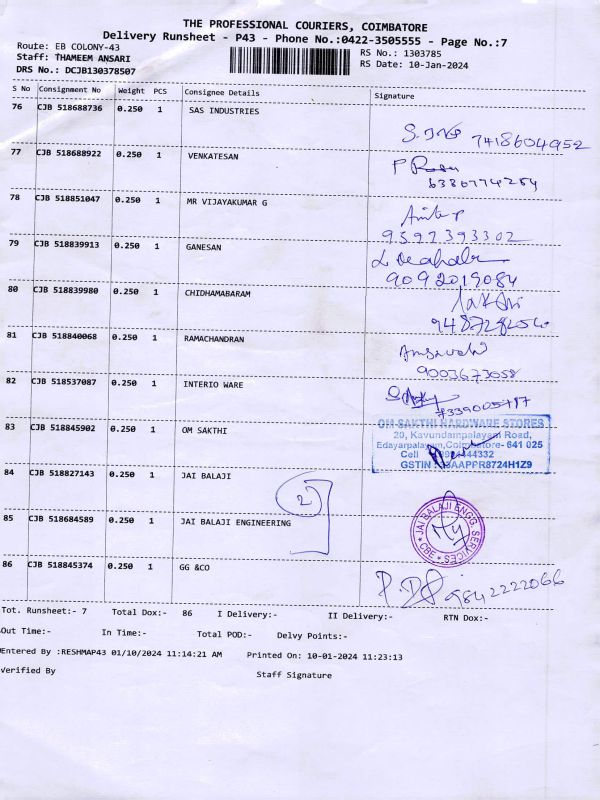 THE PROFESSIONAL COURIERS, COIMBATORE
Delivery Runsheet - P43 - Phone No.:0422-3505555 - Page No.:7
Route: EB COLONY-43
RS No.: 1303785
Staff: THAMEEM ANSARI
RS Date: 10-Jan-2024
DRS No.: DCJB130378507
S No Consignment No Weight PCS Consignee Details Signature
76 CJB 518688736 0.250 1 SAS INDUSTRIES
7418604952
77 CJB 518688922 0.250 1 VENKATESAN
6380774284
78 CJB 518851047 0.250 1 MR VIJAYAKUMAR G
9597393302
79 CJB 518839913 0.250 1 GANESAN
9092019084
80 CJB 518839980 0.250 1 CHIDHAMABARAM
81 CJB 518840068 0.250 1 RAMACHANDRAN
9003673058
82 CJB 518537087 0.250 1 INTERIO WARE
83 CJB 518845902 0.250 1 OM SAKTHI
OM SAKTHI HARDWARE STORES
20, Kavundampalayam Road,
Edayarpalayam, Coimbatore- 641 025
Cell 44332
GSTIN AAPPR8724H1Z9
84 CJB 518827143 0.250 1 JAI BALAJI
2
85 CJB 518684589 0.250 1 JAI BALAJI ENGINEERING
JAI BALAJI ENGG. SERVICES
CBE
86 CJB 518845374 0.250 1 GG &CO
9842222066
Tot. Runsheet:- 7 Total Dox:- 86 I Delivery:- II Delivery:- RTN Dox:-
Out Time:- In Time:- Total POD:- Delvy Points:-
Entered By :RESHMAP43 01/10/2024 11:14:21 AM Printed On: 10-01-2024 11:23:13
Verified By Staff Signature